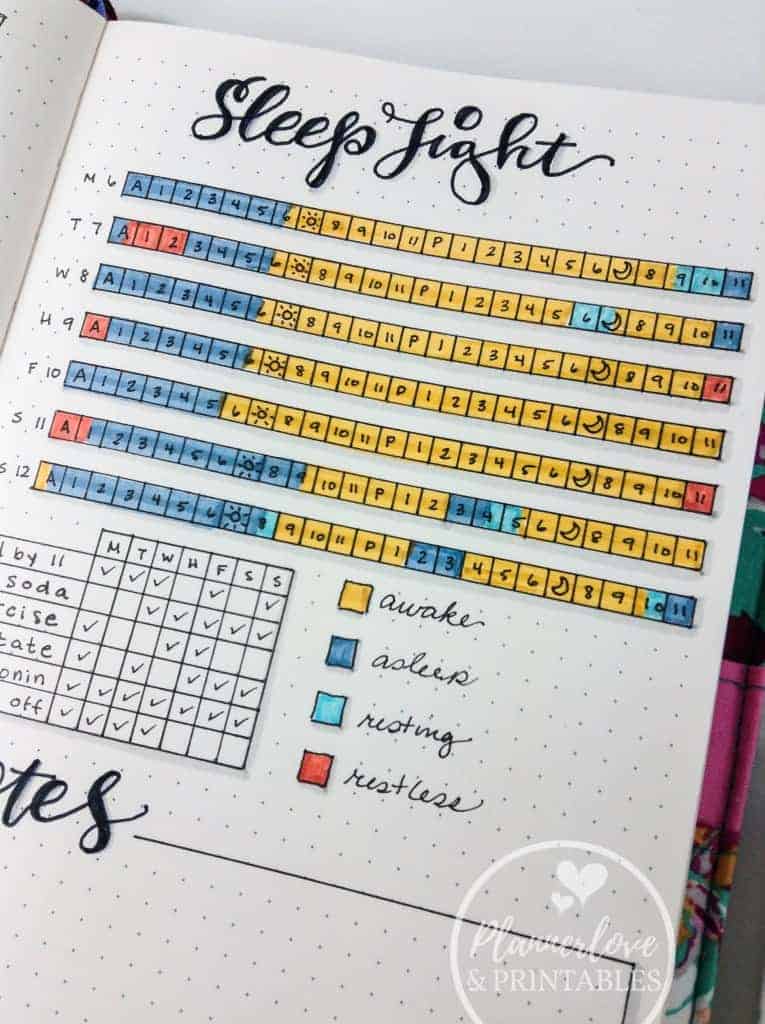 Sleep Tight
M 6 A 1 2 3 4 5 6 8 9 10 11 P 1 2 3 4 5 6 8 9 10 11
T 7 A 1 2 3 4 5 6 8 9 10 11 P 1 2 3 4 5 6 8 9 10 11
W 8 A 1 2 3 4 5 6 8 9 10 11 P 1 2 3 4 5 6 8 9 10 11
H 9 A 1 2 3 4 5 6 8 9 10 11 P 1 2 3 4 5 6 8 9 10 11
F 10 A 1 2 3 4 5 6 8 9 10 11 P 1 2 3 4 5 6 8 9 10 11
S 11 A 1 2 3 4 5 6 8 9 10 11 P 1 2 3 4 5 6 8 9 10 11
S 12 A 1 2 3 4 5 6 8 9 10 11 P 1 2 3 4 5 6 8 9 10 11
M T W H F S S
by 11
soda
rcise
tate
onin
off
awake
asleep
resting
restless
otes
Plannerlove
& PRINTABLES